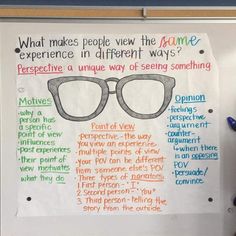 What makes people view the same
experience in different ways?
Perspective: a unique way of seeing something
Motives
-why a
person has
a specific
point of view
-influences
-past experiences
-their point
of view motivates
what they do
Point of view
-perspective - the way
you view an experience
-multiple points of view
-Your POV can be different
from someone else's POV
-Three types of narrators:
1. First person - "I"
2. Second person - "You"
3. Third person - telling the
story from the outside
Opinion
-feelings
-perspective
-argument
-counter-
argument
↳when there
is an opposing
POV
-persuade/
convince